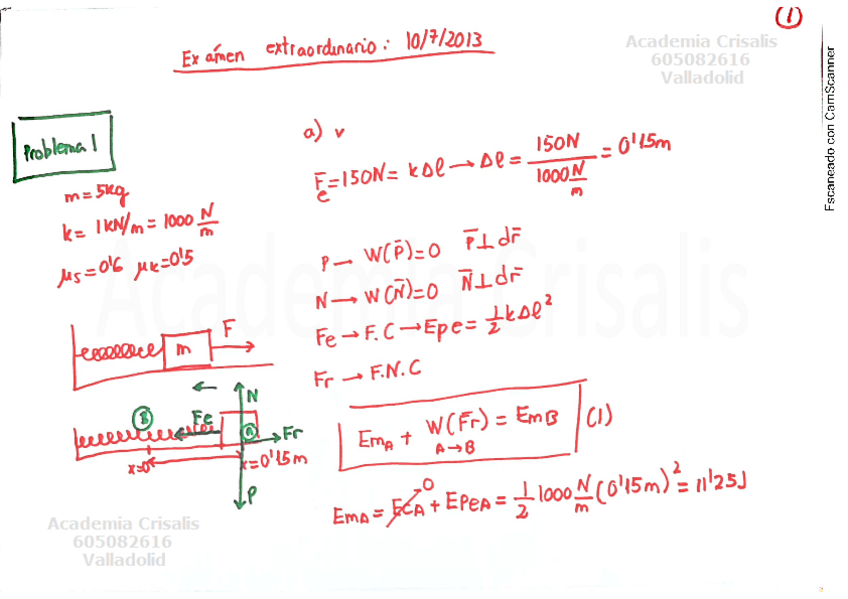 (1)
Exámen extraordinario: 10/7/2013
Academia Crisalis
605082616
Valladolid
Escaneado con CamScanner
Problema 1
m = 5kg
k = 1 kN/m = 1000 N/m
μs = 0'6 μk = 0'5
a) v
Fe = 150N = kΔl → Δl = 150N / 1000 N/m = 0'15m
P → W(P̄) = 0 P̄ ⊥ dr̄
N → W(N̄) = 0 N̄ ⊥ dr̄
Fe → F.C → Epe = 1/2 kΔl²
Fr → F.N.C
EmA + W(F̄r) A→B = EmB (1)
EmA = EcA 0 + EpeA = 1/2 1000 N/m (0'15m)² = 11'25J
m F
B Fe N A Fr
x=0 x=0'15m
P
Academia Crisalis
Academia Crisalis
605082616
Valladolid